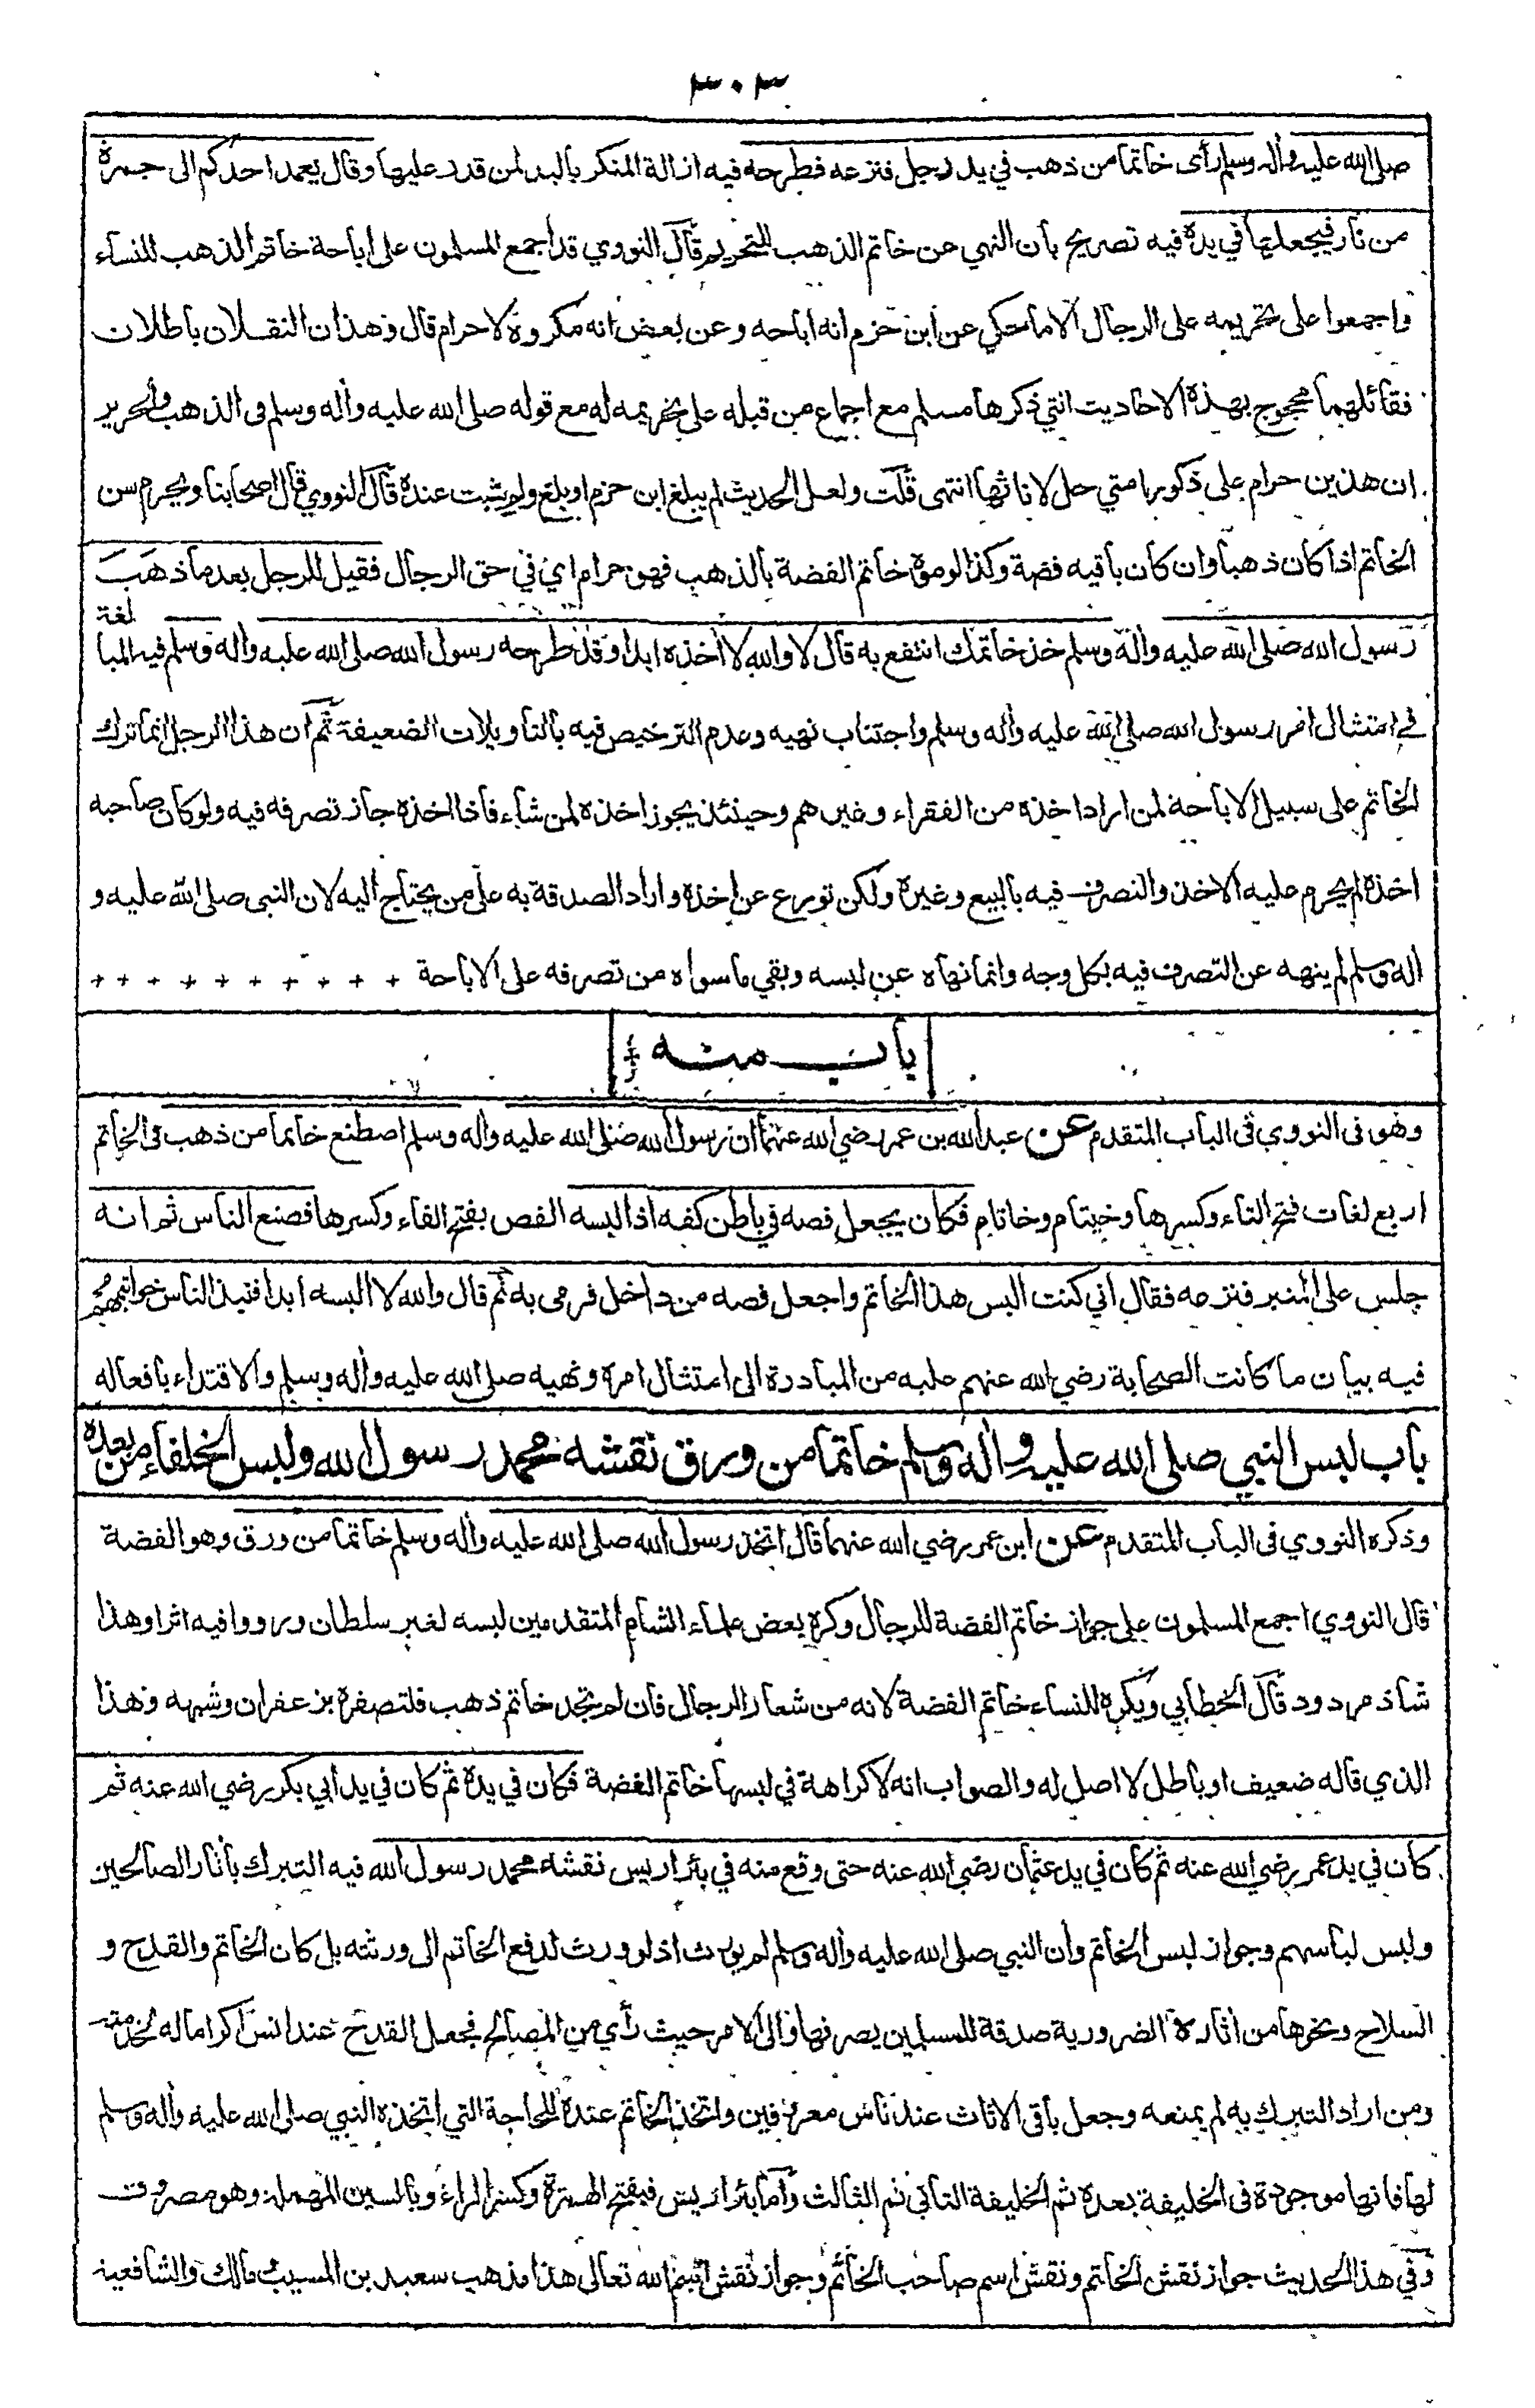 ٣٠٣
صلى الله عليه وأله وسلم رأى خاتما من ذهب في يد رجل فنزعه فطرحه فيه ازالة المنكر باليد لمن قدر عليها وقال يعمد احدكم الى جمرة
من نار فيجعلها في يده فيه تصريح بان النهي عن خاتم الذهب للتحريم قال النووي قد اجمع المسلمون على اباحة خاتم الذهب للنساء
واجمعوا على تحريمه على الرجال الا ما حكي عن ابن حزم انه اباحه وعن بعض انه مكروه لا حرام قال وهذان النقلان باطلان
فقائلهما محجوج بهذه الاحاديث التي ذكرها مسلم مع اجماع من قبله على تحريمه له مع قوله صلى الله عليه وأله وسلم فى الذهب والحرير
ان هذين حرام على ذكور امتي حل لاناثها انتهى قلت ولعل الحديث لم يبلغ ابن حزم او بلغ ولم يثبت عنده قال النووي قال اصحابنا ويحرم سن
الخاتم اذا كان ذهبا وان كان باقيه فضة وكذا لو موه خاتم الفضة بالذهب فهو حرام اي في حق الرجال فقيل للرجل بعد ما ذهب
رسول الله صلى الله عليه وأله وسلم خذ خاتمك انتفع به قال لا والله لا أخذه ابدا وقد طرحه رسول الله صلى الله عليه وأله وسلم فيه المبالغة
في امتثال امر رسول الله صلى الله عليه وأله وسلم واجتناب نهيه وعدم الترخيص فيه بالتاويلات الضعيفة ثم ان هذا الرجل انما ترك
الخاتم على سبيل الاباحة لمن اراد اخذه من الفقراء وغيرهم وحينئذ يجوز اخذه لمن شاء فاذا اخذه جاز تصرفه فيه ولو كان صاحبه
اخذه لم يحرم عليه الاخذ والتصرف فيه بالبيع وغيره ولكن تورع عن اخذه واراد الصدقة به على من يحتاج اليه لان النبى صلى الله عليه و
اله وسلم لم ينهه عن التصرف فيه بكل وجه وانما نهاه عن لبسه وبقي ما سواه من تصرفه على الاباحة + + + + + + + + + +
باب منه
وهو فى النووي فى الباب المتقدم عن عبد الله بن عمر رضي الله عنهما ان رسول الله صلى الله عليه وأله وسلم اصطنع خاتما من ذهب فى الخاتم
اربع لغات فتح التاء وكسرها وخيتام وخاتام فكان يجعل فصه في باطن كفه اذا لبسه الفص بفتح الفاء وكسرها فصنع الناس ثم انه
جلس على المنبر فنزعه فقال اني كنت البس هذا الخاتم واجعل فصه من داخل فرمى به ثم قال والله لا البسه ابدا فنبذ الناس خواتيمهم
فيه بيان ما كانت الصحابة رضي الله عنهم عليه من المبادرة الى امتثال امره ونهيه صلى الله عليه وأله وسلم والاقتداء بافعاله
باب لبس النبي صلى الله عليه وأله وسلم خاتما من ورق نقشه محمد رسول الله ولبس الخلفاء من بعده
وذكره النووي فى الباب المتقدم عن ابن عمر رضي الله عنهما قال اتخذ رسول الله صلى الله عليه وأله وسلم خاتما من ورق وهو الفضة
قال النووي اجمع المسلمون على جواز خاتم الفضة للرجال وكره بعض علماء الشام المتقدمين لبسه لغير سلطان ورووا فيه اثرا وهذا
شاذ مردود قال الخطابي ويكره للنساء خاتم الفضة لانه من شعار الرجال فان لم تجد خاتم ذهب فلتصفره بزعفران وشبهه وهذا
الذي قاله ضعيف او باطل لا اصل له والصواب انه لا كراهة في لبسها خاتم الفضة فكان في يده ثم كان في يد ابي بكر رضي الله عنه ثم
كان في يد عمر رضي الله عنه ثم كان في يد عثمان رضي الله عنه حتى وقع منه في بئر اريس نقشه محمد رسول الله فيه التبرك بأثار الصالحين
ولبس لباسهم وجواز لبس الخاتم وان النبي صلى الله عليه وأله وسلم لم يورث اذ لو ورث لدفع الخاتم الى ورثته بل كان الخاتم والقدح و
السلاح ونحوها من أثاره الضرورية صدقة للمسلمين يصرفها والى الامر حيث رأى من المصالح فجعل القدح عند انس اكراما له لخدمته
ومن اراد التبرك به لم يمنعه وجعل باقى الاثاث عند ناس معروفين واتخذ الخاتم عنده للحاجة التي اتخذه النبي صلى الله عليه وأله وسلم
لها فانها موجودة فى الخليفة بعده ثم الخليفة الثاني ثم الثالث وأما بئر اريس فبفتح الهمزة وكسر الراء وبالسين المهملة وهو مصروف
وفي هذا الحديث جواز نقش الخاتم ونقش اسم صاحب الخاتم وجواز نقش اسم الله تعالى هذا مذهب سعيد بن المسيب ومالك والشافعية